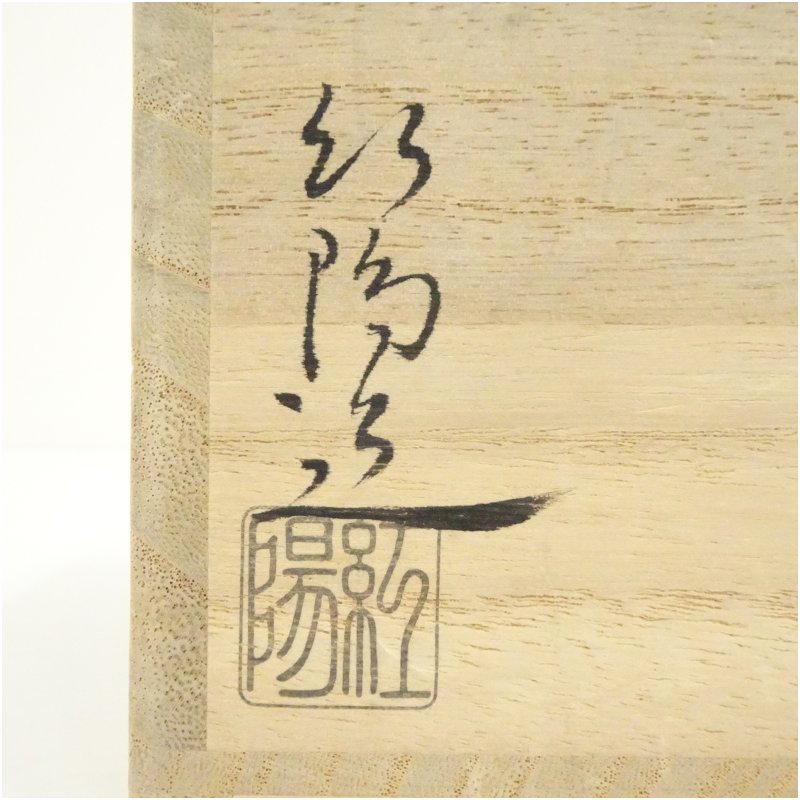 紅陽造
紅陽